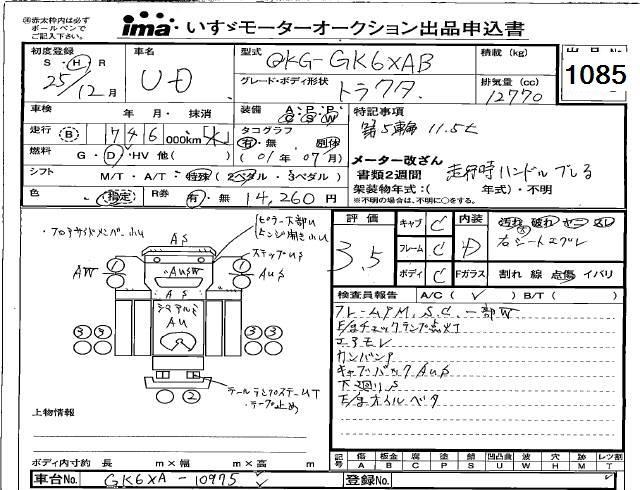 ㊟赤太枠内は必ず
ボールペンで
ご記入下さい。
ima いすゞモーターオークション出品申込書
初度登録 S・H・R 25/12月
車名 UD
型式 QKG-GK6XAB
グレード・ボディ形状 トラクタ
積載 (kg)
排気量 (cc) 12770
出品No
1085
車検 年 月・ 抹消
走行 B 1746 000km
燃料 G・D・HV 他( )
シフト M/T・A/T・特殊(2ペダル・3ペダル)
色 (指定) R券 有・無 14,260円
装備 A/C P/S P/W
タコグラフ
有・無
(01年07月)
特記事項
第5輪 11.5t
メーター改ざん
書類2週間 走行時ハンドルブレる
架装物年式:( 年式)・不明
※不明の場合は、不明に○をする。
・フロアサイドメンバー小U
ピラー下部U
ヒンジ開き小U
ステップUS
AS
AW
AUSW
AUS
AS
シマアルミ
AU
3 3 3 3
2
テールランプステームT
・テープ止め
上物情報
評価 3.5
キャブ C
フレーム C
ボディ C
内装 D
汚れ 破れ ヤニ スレ
右シートエグレ
Fガラス 割れ 線 点傷 イバリ
検査員報告 A/C( ✓ ) B/T( )
フレームPM,S,C,一部W
E/gチェックランプ点灯
エアモレ
カンバンP
キャブバックAUS
下廻りS
E/gオイルベタ
記号 傷 板金 腐 塗 錆 凹凸傷 波 穴 跡 レッ割
A B C P S U W H M T
ボディ内寸約 長 m×幅 m×高 m
車台No. GK6XA-10975
登録No.